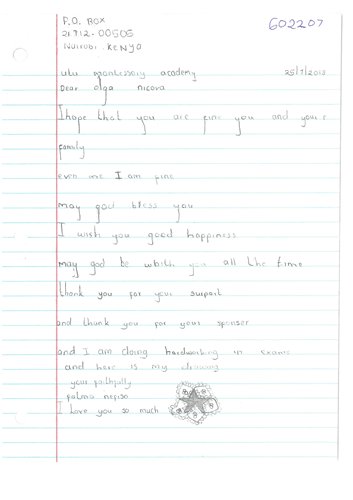 P.O. BOX
602207
21912-00505
Nairobi KENYA
ulu montessory academy
25/7/2018
Dear olga nicova
I hope that you are fine you and your
family
even me I am fine
may god bless you
I wish you good happiness
may god be with you all the time
thank you for your support
and thank you for your sponser
and I am doing hardworking in exams
and here is my drawing
your faithfully
I love you so much